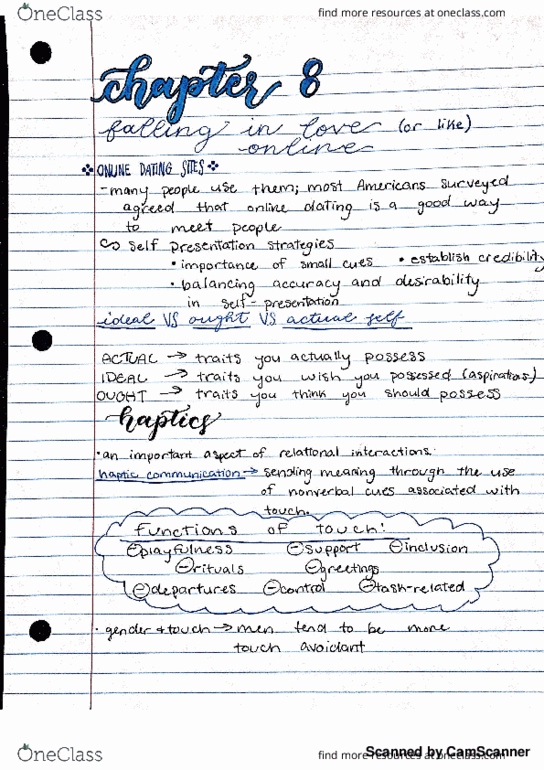 OneClass find more resources at oneclass.com
chapter 8
falling in love (or like)
online
ONLINE DATING SITES
- many people use them; most Americans surveyed
agreed that online dating is a good way
to meet people
↪ self presentation strategies
• importance of small cues • establish credibility
• balancing accuracy and desirability
in self-presentation
ideal VS ought VS actual self
ACTUAL → traits you actually possess
IDEAL → traits you wish you possessed (aspirations)
OUGHT → traits you think you should possess
haptics
• an important aspect of relational interactions:
haptic communication → sending meaning through the use
of nonverbal cues associated with
touch.
functions of touch:
playfulness support inclusion
rituals greetings
departures control task-related
• gender + touch → men tend to be more
touch avoidant
Scanned by CamScanner
OneClass find more resources at oneclass.com